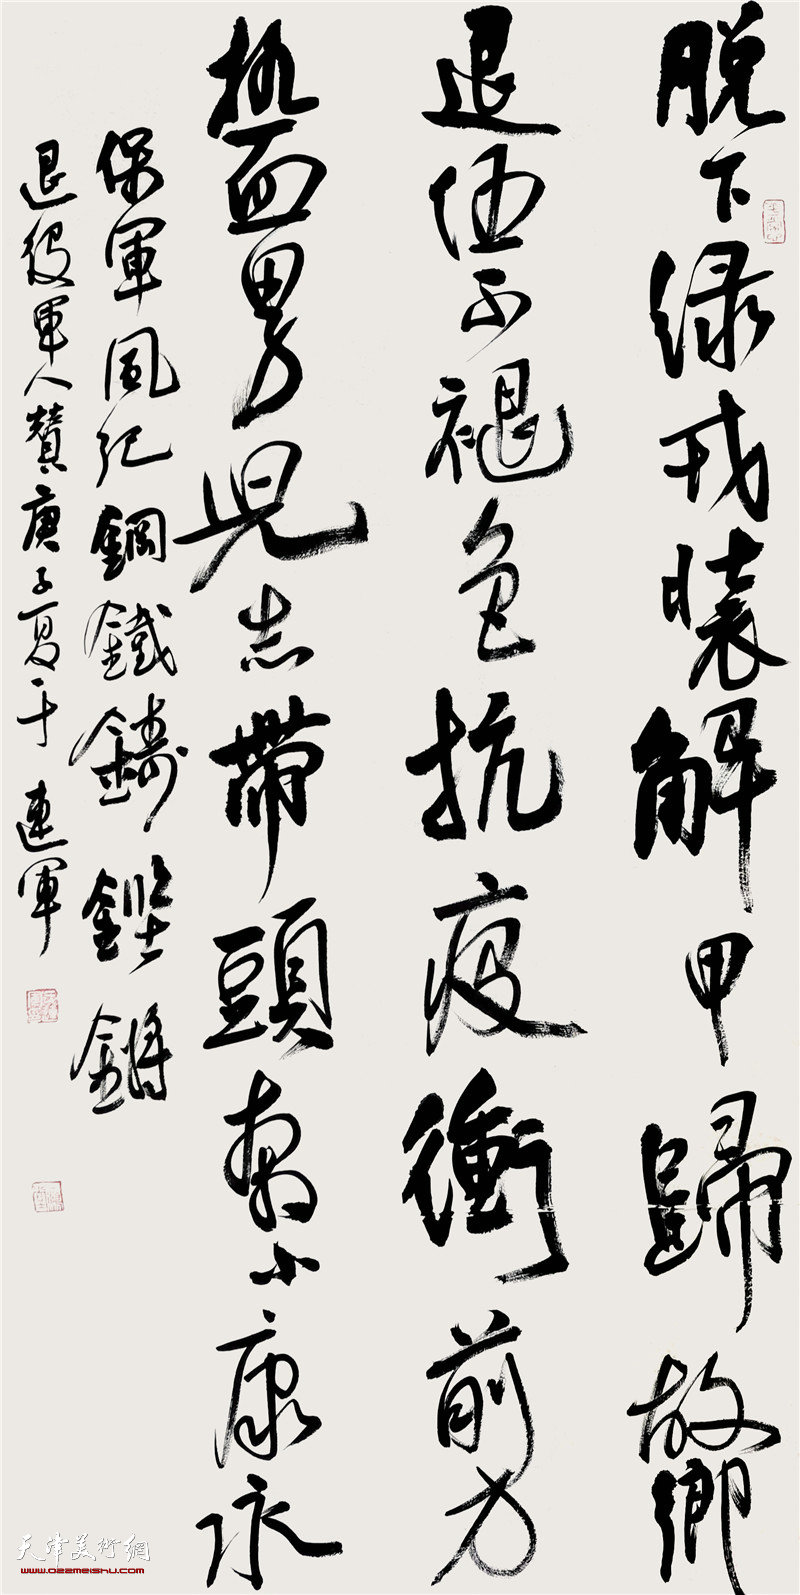 脱下绿戎装解甲歸故鄉
退伍不褪色抗疫衝前方
热血男兒志帶頭奔小康永
保軍風纪鋼鐵鑄鏗鏘
退役軍人贊庚子夏于連軍
天津美術網
www.022meishu.com